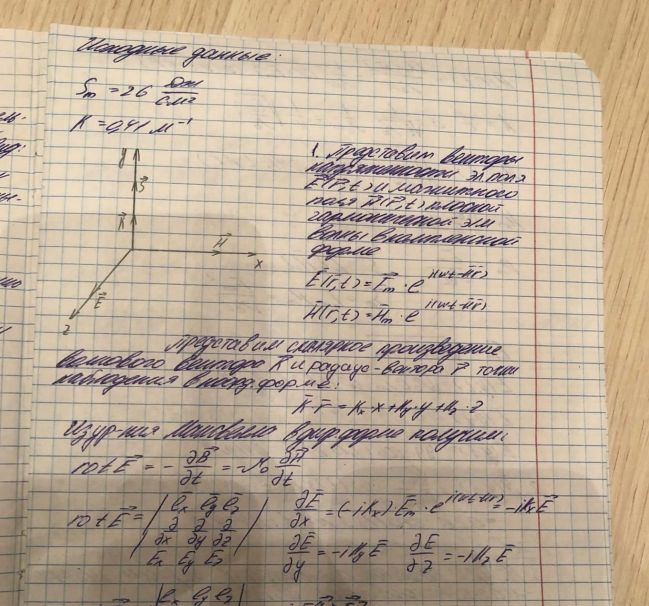 Исходные данные:
Sm = 26 Дж/см²
K = 0,41 м⁻¹
y
S⃗
K⃗
H⃗
x
E⃗
z
1. Представим векторы
напряженности эл.поля
E⃗(r⃗,t) и магнитного
поля H⃗(r⃗,t) плоской
гармонической эл.м
волны в комплексной
форме
E⃗(r⃗,t) = E⃗m · e^i(ωt-k⃗r⃗)
H⃗(r⃗,t) = H⃗m · e^i(ωt-k⃗r⃗)
Представим скалярное произведение
волнового вектора K⃗ и радиус-вектора r⃗ точки
наблюдения в коорд форме:
K⃗·r⃗ = Kx·x + Ky·y + Kz·z
Из ур-ния Максвелла в диф форме получим:
rot E⃗ = - ∂B⃗/∂t = μ₀ ∂H⃗/∂t
rot E⃗ = | e⃗x e⃗y e⃗z | ∂E⃗/∂x = (-iKx) E⃗m · e^i(ωt-k⃗r⃗) = -iKx E⃗
∂/∂x ∂/∂y ∂/∂z
Ex Ey Ez ∂E⃗/∂y = -iKy E⃗ ∂E⃗/∂z = -iKz E⃗
ex ey ez